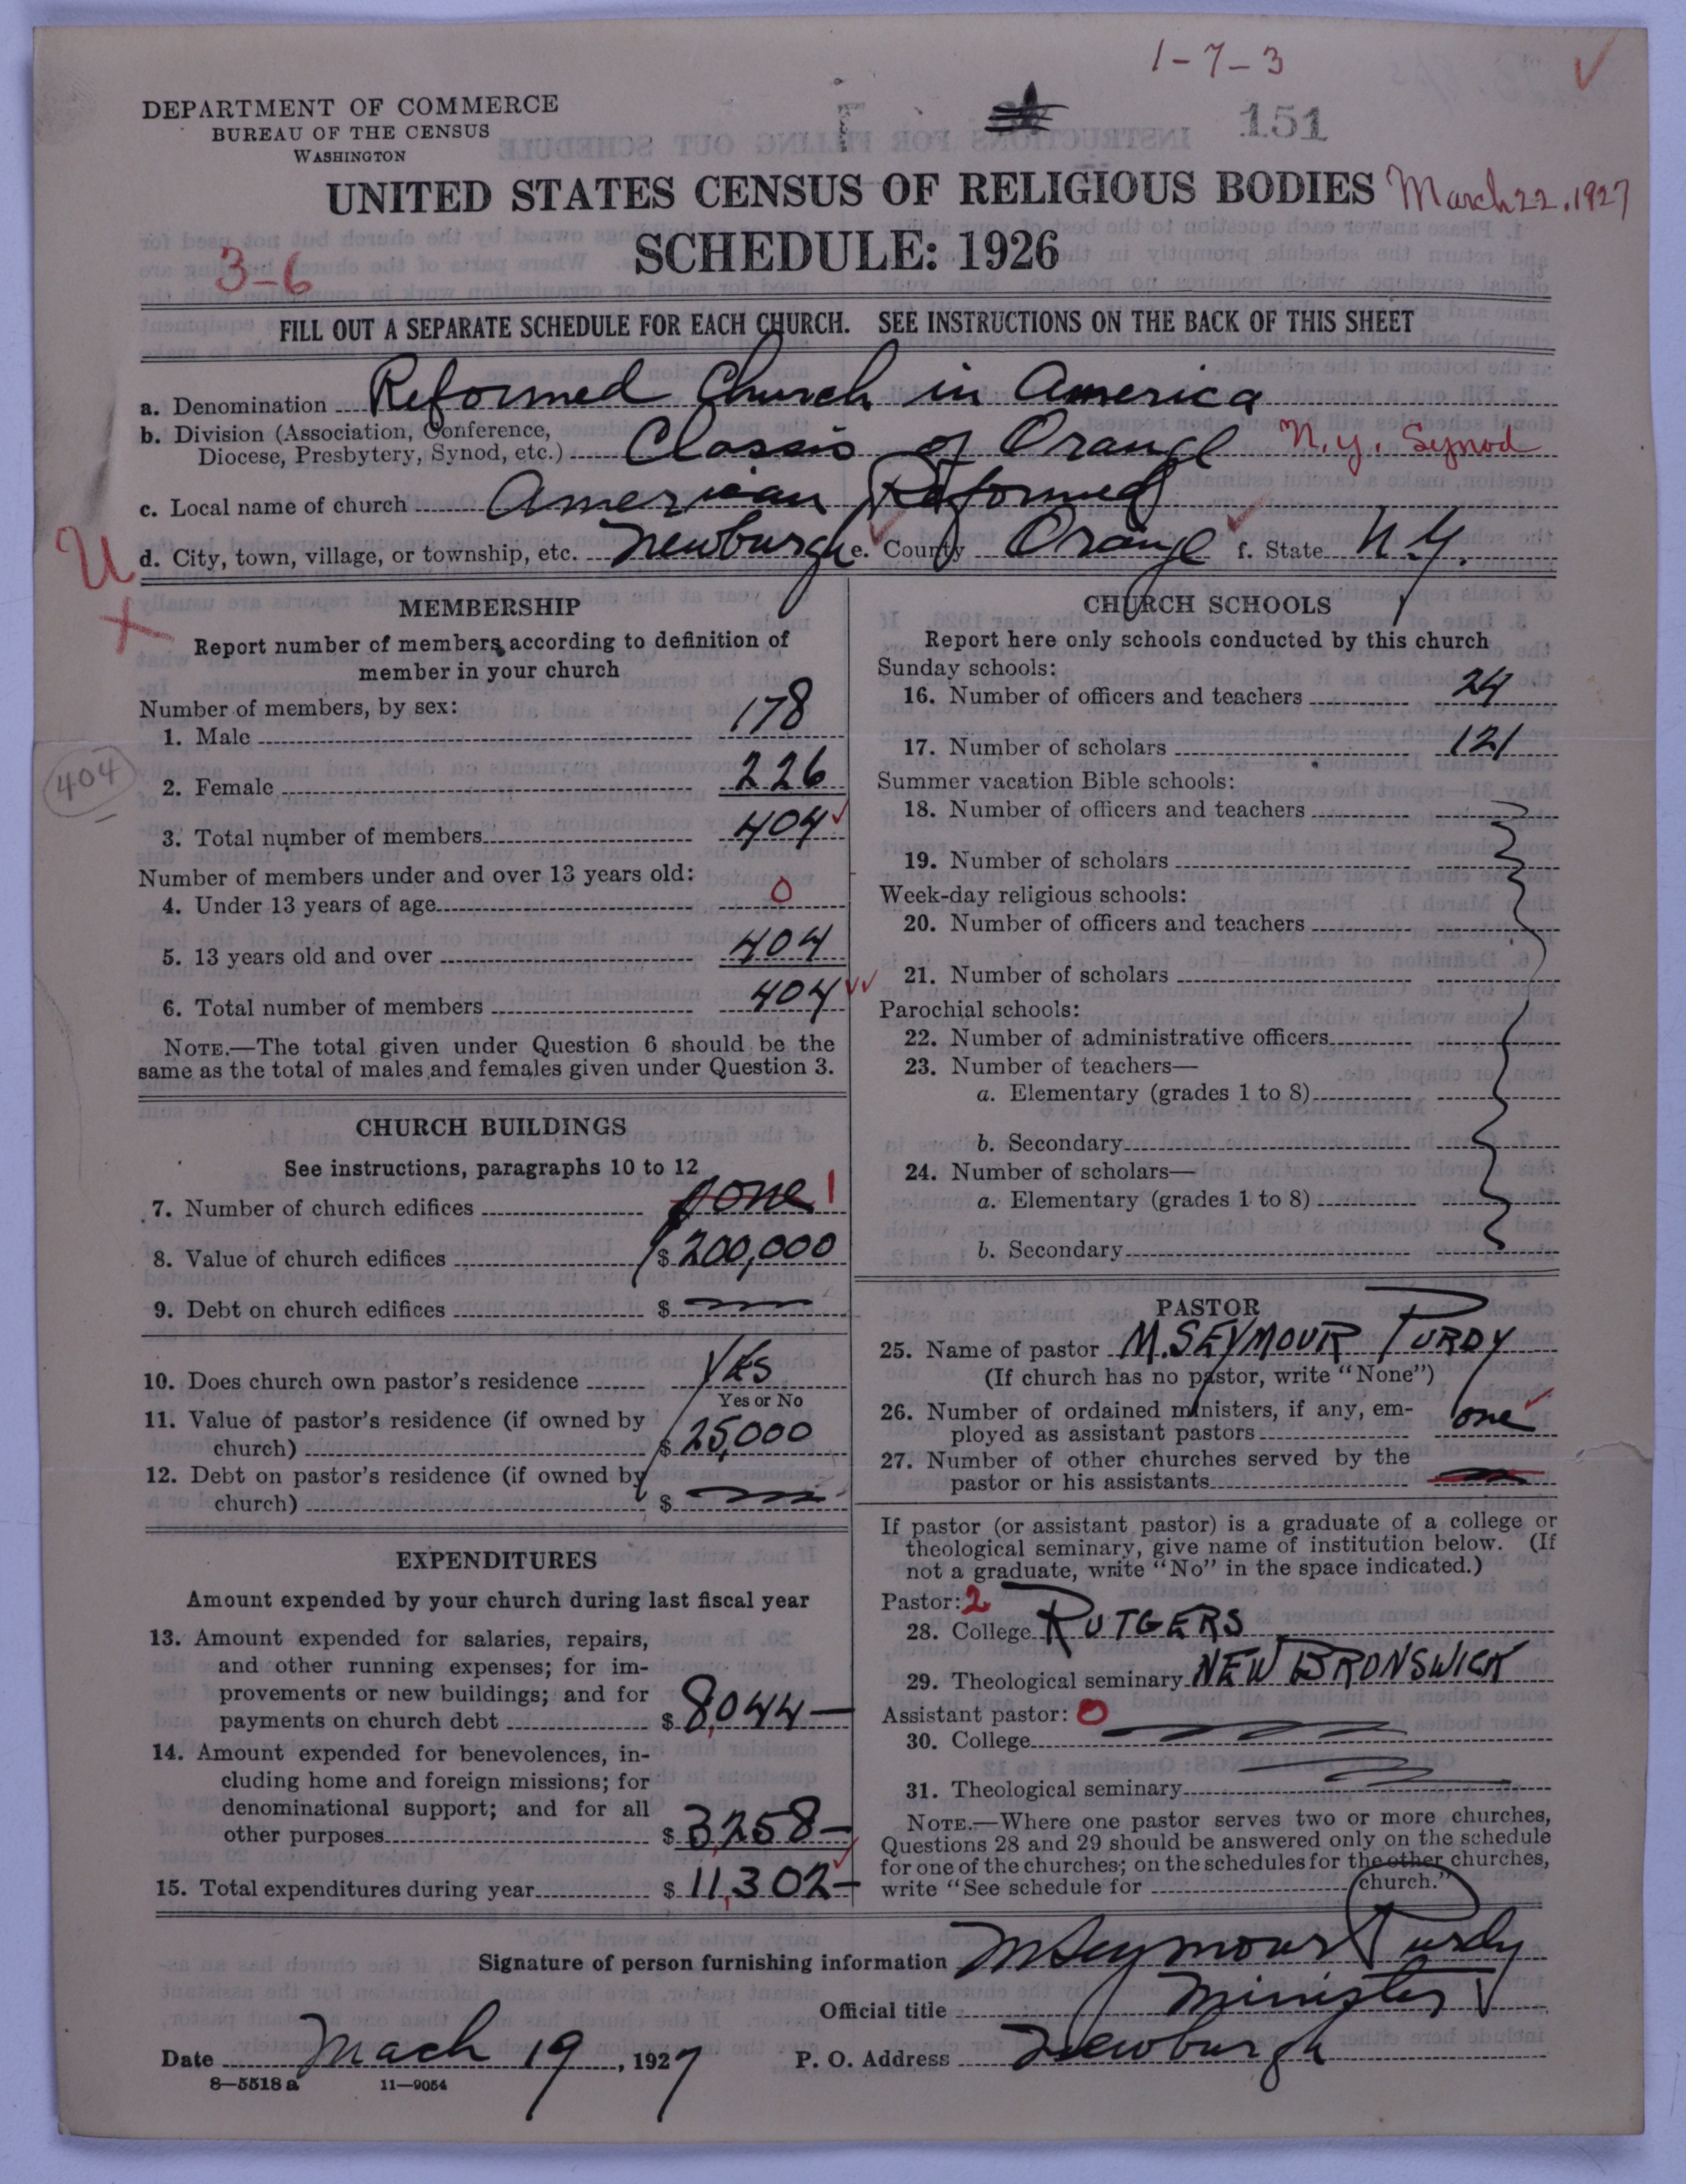 1-7-3
DEPARTMENT OF COMMERCE
BUREAU OF THE CENSUS
WASHINGTON
151
UNITED STATES CENSUS OF RELIGIOUS BODIES March 22, 1927
SCHEDULE: 1926
3-6
FILL OUT A SEPARATE SCHEDULE FOR EACH CHURCH. SEE INSTRUCTIONS ON THE BACK OF THIS SHEET
a. Denomination Reformed Church in America
b. Division (Association, Conference,
Diocese, Presbytery, Synod, etc.) Classis of Orange N.Y. Synod
c. Local name of church American Reformed
U d. City, town, village, or township, etc. Newburgh e. County Orange f. State N.Y.
X
MEMBERSHIP
Report number of members according to definition of
member in your church
Number of members, by sex:
1. Male 178
404
2. Female 226
3. Total number of members 404
Number of members under and over 13 years old:
4. Under 13 years of age 0
5. 13 years old and over 404
6. Total number of members 404
NOTE.—The total given under Question 6 should be the
same as the total of males and females given under Question 3.
CHURCH BUILDINGS
See instructions, paragraphs 10 to 12
7. Number of church edifices one 1
8. Value of church edifices $ 200,000
9. Debt on church edifices $ —
10. Does church own pastor's residence Yes
Yes or No
11. Value of pastor's residence (if owned by
church) $ 25,000
12. Debt on pastor's residence (if owned by
church) $ —
EXPENDITURES
Amount expended by your church during last fiscal year
13. Amount expended for salaries, repairs,
and other running expenses; for im-
provements or new buildings; and for
payments on church debt $ 8,044—
14. Amount expended for benevolences, in-
cluding home and foreign missions; for
denominational support; and for all
other purposes $ 3,258—
15. Total expenditures during year $ 11,302—
CHURCH SCHOOLS
Report here only schools conducted by this church
Sunday schools:
16. Number of officers and teachers 24
17. Number of scholars 121
Summer vacation Bible schools:
18. Number of officers and teachers
19. Number of scholars
Week-day religious schools:
20. Number of officers and teachers
21. Number of scholars
Parochial schools:
22. Number of administrative officers
23. Number of teachers—
a. Elementary (grades 1 to 8)
b. Secondary
24. Number of scholars—
a. Elementary (grades 1 to 8)
b. Secondary
PASTOR
25. Name of pastor M. SEYMOUR PURDY
(If church has no pastor, write "None")
26. Number of ordained ministers, if any, em-
ployed as assistant pastors one
27. Number of other churches served by the
pastor or his assistants —
If pastor (or assistant pastor) is a graduate of a college or
theological seminary, give name of institution below. (If
not a graduate, write "No" in the space indicated.)
Pastor: 2
28. College RUTGERS
29. Theological seminary NEW BRUNSWICK
Assistant pastor: 0
30. College
31. Theological seminary
NOTE.—Where one pastor serves two or more churches,
Questions 28 and 29 should be answered only on the schedule
for one of the churches; on the schedules for the other churches,
write "See schedule for church."
Signature of person furnishing information M Seymour Purdy
Official title Minister
Date Mach 19, 1927 P. O. Address Newburgh
8—5518 a 11—9054